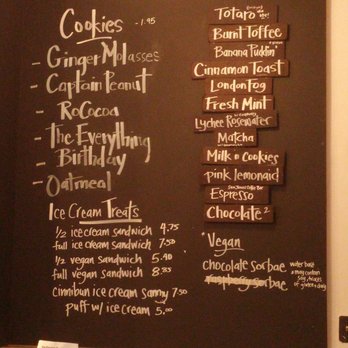 Cookies - 1.95
- Ginger Molasses
- Captain Peanut
- RoCocoa
- The Everything
Birthday
- Oatmeal
Ice Cream Treats
1/2 ice cream sandwich 4.75
full ice cream sandwich 7.50
1/2 vegan sandwich 5.40
full vegan sandwich 8.85
cinnibun ice cream sammy 7.50
puff w/ ice cream 5.00
Totaro
Burnt Toffee
Banana Puddin'
Cinnamon Toast
London Fog
Fresh Mint
Lychee Rosewater
Matcha
Milk n Cookies
pink lemonaid
Espresso
Chocolate 2
*Vegan
chocolate sorbae
raspberry sorbae